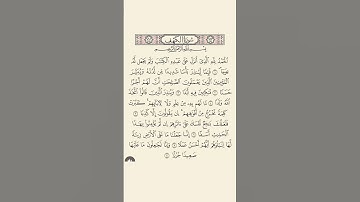 سُورَةُ الكَهۡفِ
بِسۡمِ ٱللَّهِ ٱلرَّحۡمَٰنِ ٱلرَّحِيمِ
ٱلۡحَمۡدُ لِلَّهِ ٱلَّذِيٓ أَنزَلَ عَلَىٰ عَبۡدِهِ ٱلۡكِتَٰبَ وَلَمۡ يَجۡعَل لَّهُۥ
عِوَجَاۜ ١ قَيِّمٗا لِّيُنذِرَ بَأۡسٗا شَدِيدٗا مِّن لَّدُنۡهُ وَيُبَشِّرَ
ٱلۡمُؤۡمِنِينَ ٱلَّذِينَ يَعۡمَلُونَ ٱلصَّٰلِحَٰتِ أَنَّ لَهُمۡ أَجۡرًا
حَسَنٗا ٢ مَّٰكِثِينَ فِيهِ أَبَدٗا ٣ وَيُنذِرَ ٱلَّذِينَ قَالُواْ ٱتَّخَذَ
ٱللَّهُ وَلَدٗا ٤ مَّا لَهُم بِهِۦ مِنۡ عِلۡمٖ وَلَا لِأٓبَآئِهِمۡۚ كَبُرَتۡ
كَلِمَةٗ تَخۡرُجُ مِنۡ أَفۡوَٰهِهِمۡۚ إِن يَقُولُونَ إِلَّا كَذِبٗا ٥
فَلَعَلَّكَ بَٰخِعٞ نَّفۡسَكَ عَلَىٰٓ ءَاثَٰرِهِمۡ إِن لَّمۡ يُؤۡمِنُواْ بِهَٰذَا
ٱلۡحَدِيثِ أَسَفًا ٦ إِنَّا جَعَلۡنَا مَا عَلَى ٱلۡأَرۡضِ زِينَةٗ
لَّهَا لِنَبۡلُوَهُمۡ أَيُّهُمۡ أَحۡسَنُ عَمَلٗا ٧ وَإِنَّا لَجَٰعِلُونَ مَا عَلَيۡهَا
صَعِيدٗا جُرُزًا ٨